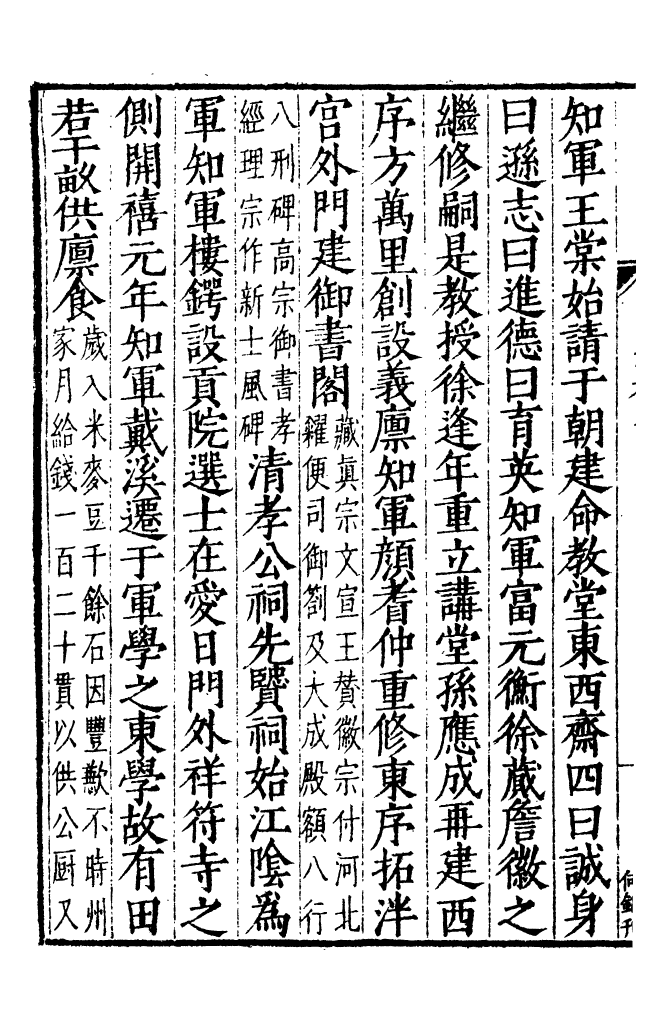 知軍王棠始請于朝建命教堂東西齋四曰誠身
曰遜志曰進德曰育英知軍富元衡徐蕆詹徽之
繼修嗣是教授徐逢年重立講堂孫應成再建西
序方萬里創設義廪知軍顔耆仲重修東序拓泮
宫外門建御書閣藏眞宗文宣王賛徽宗付河北
糴便司御劄及大成殿額八行
八刑碑高宗御書孝
經理宗作新士風碑清孝公祠先賢祠始江陰爲
軍知軍樓鍔設貢院選士在愛日門外祥符寺之
側開禧元年知軍戴溪遷于軍學之東學故有田
若干畝供廪食歲入米麥豆千餘石因豐歉不時州
家月給錢一百二十貫以供公厨又